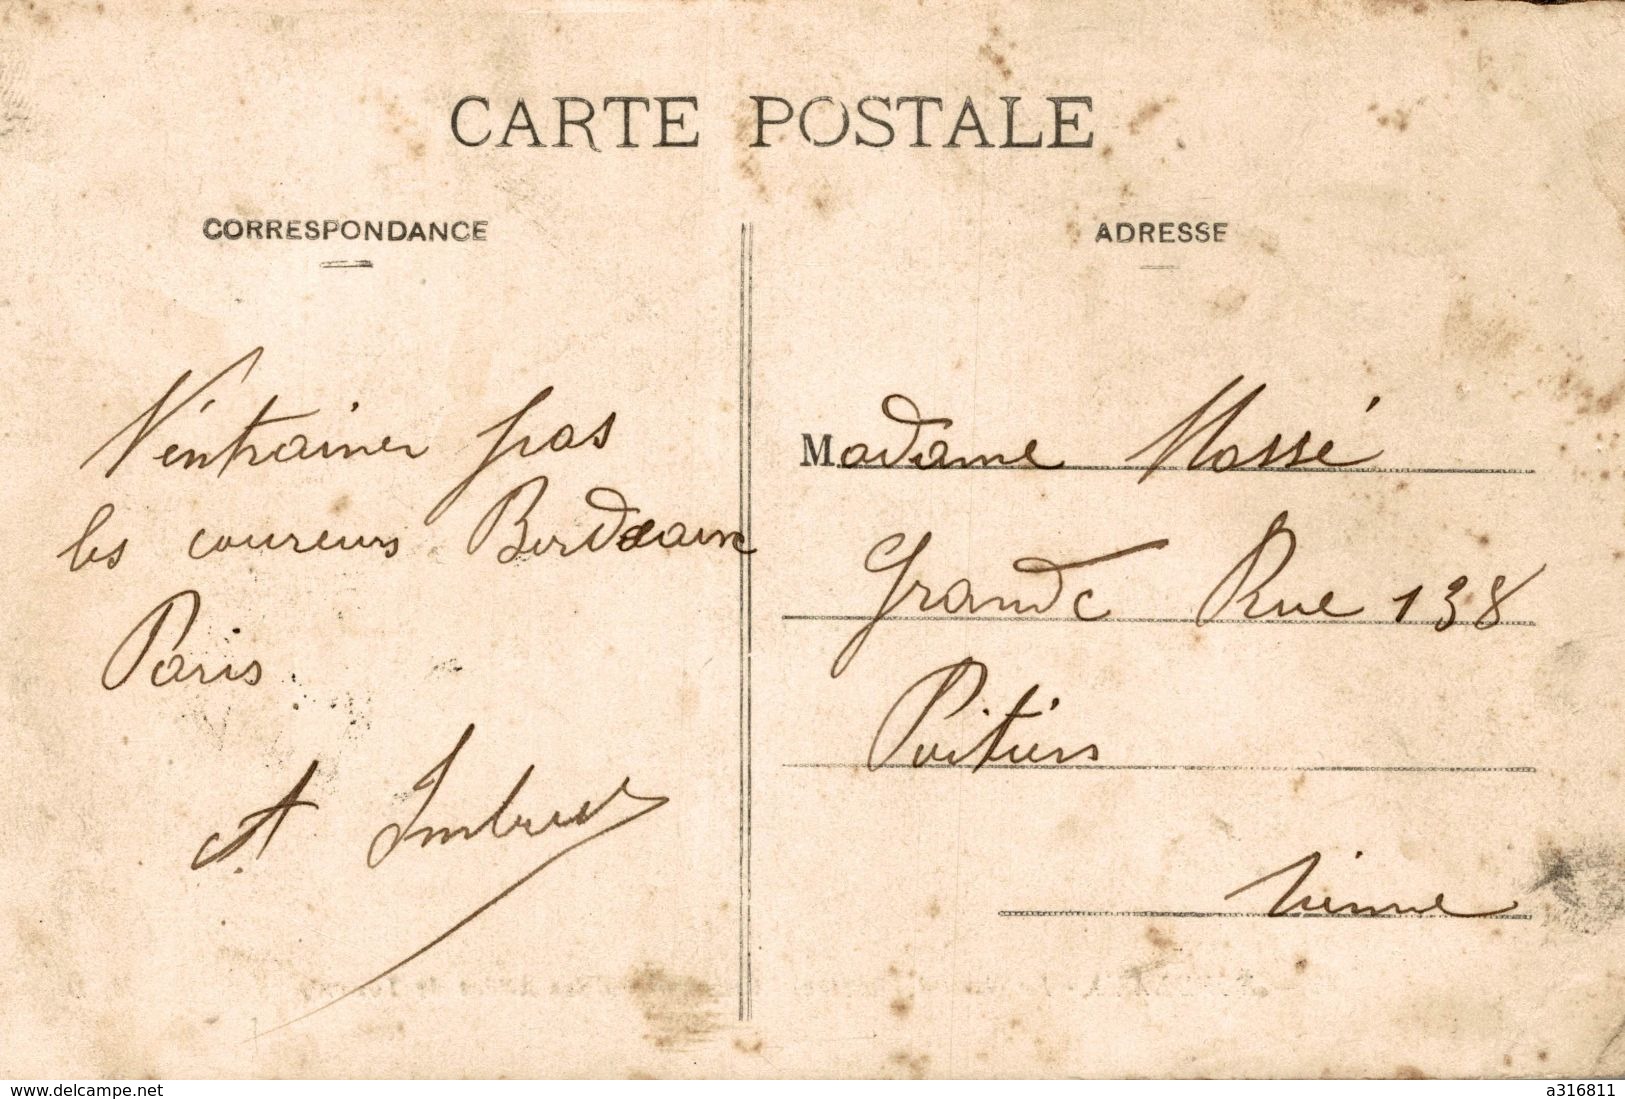 CARTE POSTALE
CORRESPONDANCE
N'entrainer pas
les coureurs Bordeaux
Paris.
A.
ADRESSE
Madame Massé
Grande Rue 138
Poitiers
Vienne
https://www.delcampe.net
a316811